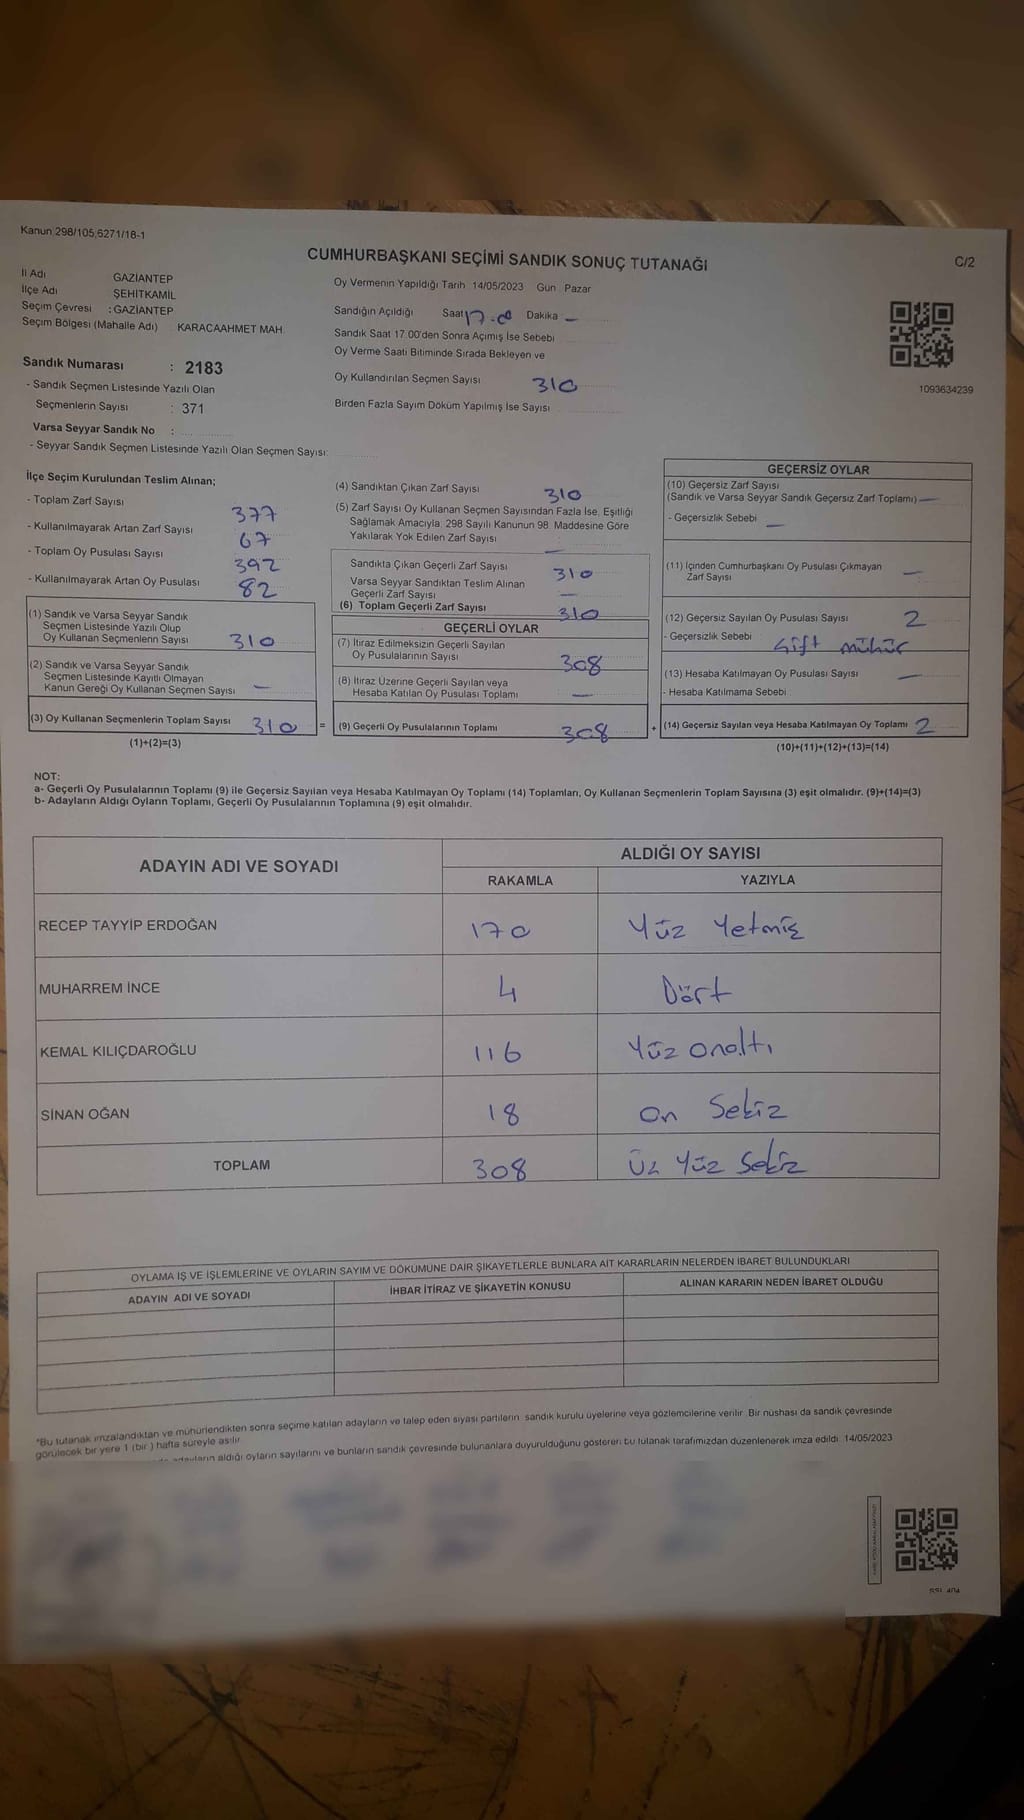 Kanun 298/105,6271/18-1
CUMHURBAŞKANI SEÇİMİ SANDIK SONUÇ TUTANAĞI
C/2
İl Adı GAZİANTEP
İlçe Adı ŞEHİTKAMİL
Seçim Çevresi : GAZİANTEP
Seçim Bölgesi (Mahalle Adı) KARACAAHMET MAH.
Sandık Numarası : 2183
- Sandık Seçmen Listesinde Yazılı Olan
Seçmenlerin Sayısı : 371
Varsa Seyyar Sandık No :
- Seyyar Sandık Seçmen Listesinde Yazılı Olan Seçmen Sayısı:
Oy Vermenin Yapıldığı Tarih 14/05/2023 Gün Pazar
Sandığın Açıldığı Saat Dakika -
Sandık Saat 17.00'den Sonra Açımış İse Sebebi
Oy Verme Saati Bitiminde Sırada Bekleyen ve
Oy Kullandırılan Seçmen Sayısı 310
Birden Fazla Sayım Döküm Yapılmış İse Sayısı
1093634239
İlçe Seçim Kurulundan Teslim Alınan;
- Toplam Zarf Sayısı 377
- Kullanılmayarak Artan Zarf Sayısı 67
- Toplam Oy Pusulası Sayısı 392
- Kullanılmayarak Artan Oy Pusulası 82
(1) Sandık ve Varsa Seyyar Sandık
Seçmen Listesinde Yazılı Olup
Oy Kullanan Seçmenlerin Sayısı 310
(2) Sandık ve Varsa Seyyar Sandık
Seçmen Listesinde Kayıtlı Olmayan
Kanun Gereği Oy Kullanan Seçmen Sayısı -
(3) Oy Kullanan Seçmenlerin Toplam Sayısı 310 =
(1)+(2)=(3)
(4) Sandıktan Çıkan Zarf Sayısı 310
(5) Zarf Sayısı Oy Kullanan Seçmen Sayısından Fazla İse, Eşitliği
Sağlamak Amacıyla, 298 Sayılı Kanunun 98. Maddesine Göre
Yakılarak Yok Edilen Zarf Sayısı -
Sandıkta Çıkan Geçerli Zarf Sayısı 310
Varsa Seyyar Sandıktan Teslim Alınan
Geçerli Zarf Sayısı -
(6) Toplam Geçerli Zarf Sayısı 310
GEÇERLİ OYLAR
(7) İtiraz Edilmeksizin Geçerli Sayılan
Oy Pusulalarının Sayısı 308
(8) İtiraz Üzerine Geçerli Sayılan veya
Hesaba Katılan Oy Pusulası Toplamı -
(9) Geçerli Oy Pusulalarının Toplamı 308 +
GEÇERSİZ OYLAR
(10) Geçersiz Zarf Sayısı
(Sandık ve Varsa Seyyar Sandık Geçersiz Zarf Toplamı) -
- Geçersizlik Sebebi -
(11) İçinden Cumhurbaşkanı Oy Pusulası Çıkmayan
Zarf Sayısı -
(12) Geçersiz Sayılan Oy Pusulası Sayısı 2
- Geçersizlik Sebebi Çift mühür
(13) Hesaba Katılmayan Oy Pusulası Sayısı -
- Hesaba Katılmama Sebebi
(14) Geçersiz Sayılan veya Hesaba Katılmayan Oy Toplamı 2
(10)+(11)+(12)+(13)=(14)
NOT:
a- Geçerli Oy Pusulalarının Toplamı (9) ile Geçersiz Sayılan veya Hesaba Katılmayan Oy Toplamı (14) Toplamları, Oy Kullanan Seçmenlerin Toplam Sayısına (3) eşit olmalıdır. (9)+(14)=(3)
b- Adayların Aldığı Oyların Toplamı, Geçerli Oy Pusulalarının Toplamına (9) eşit olmalıdır.
ADAYIN ADI VE SOYADI
ALDIĞI OY SAYISI
RAKAMLA YAZIYLA
RECEP TAYYİP ERDOĞAN 170 Yüz Yetmiş
MUHARREM İNCE 4 Dört
KEMAL KILIÇDAROĞLU 116 Yüz onaltı
SİNAN OĞAN 18 on Sekiz
TOPLAM 308 Üç Yüz Sekiz
OYLAMA İŞ VE İŞLEMLERİNE VE OYLARIN SAYIM VE DÖKÜMÜNE DAİR ŞİKAYETLERLE BUNLARA AİT KARARLARIN NELERDEN İBARET BULUNDUKLARI
ADAYIN ADI VE SOYADI İHBAR İTİRAZ VE ŞİKAYETİN KONUSU ALINAN KARARIN NEDEN İBARET OLDUĞU
*Bu tutanak imzalandıktan ve mühürlendikten sonra seçime katılan adayların ve talep eden siyasi partilerin sandık kurulu üyelerine veya gözlemcilerine verilir. Bir nüshası da sandık çevresinde
görülecek bir yere 1 (bir) hafta süreyle asılır.
adayların aldığı oyların sayılarını ve bunların sandık çevresinde bulunanlara duyurulduğunu gösteren bu tutanak tarafımızdan düzenlenerek imza edildi. 14/05/2023